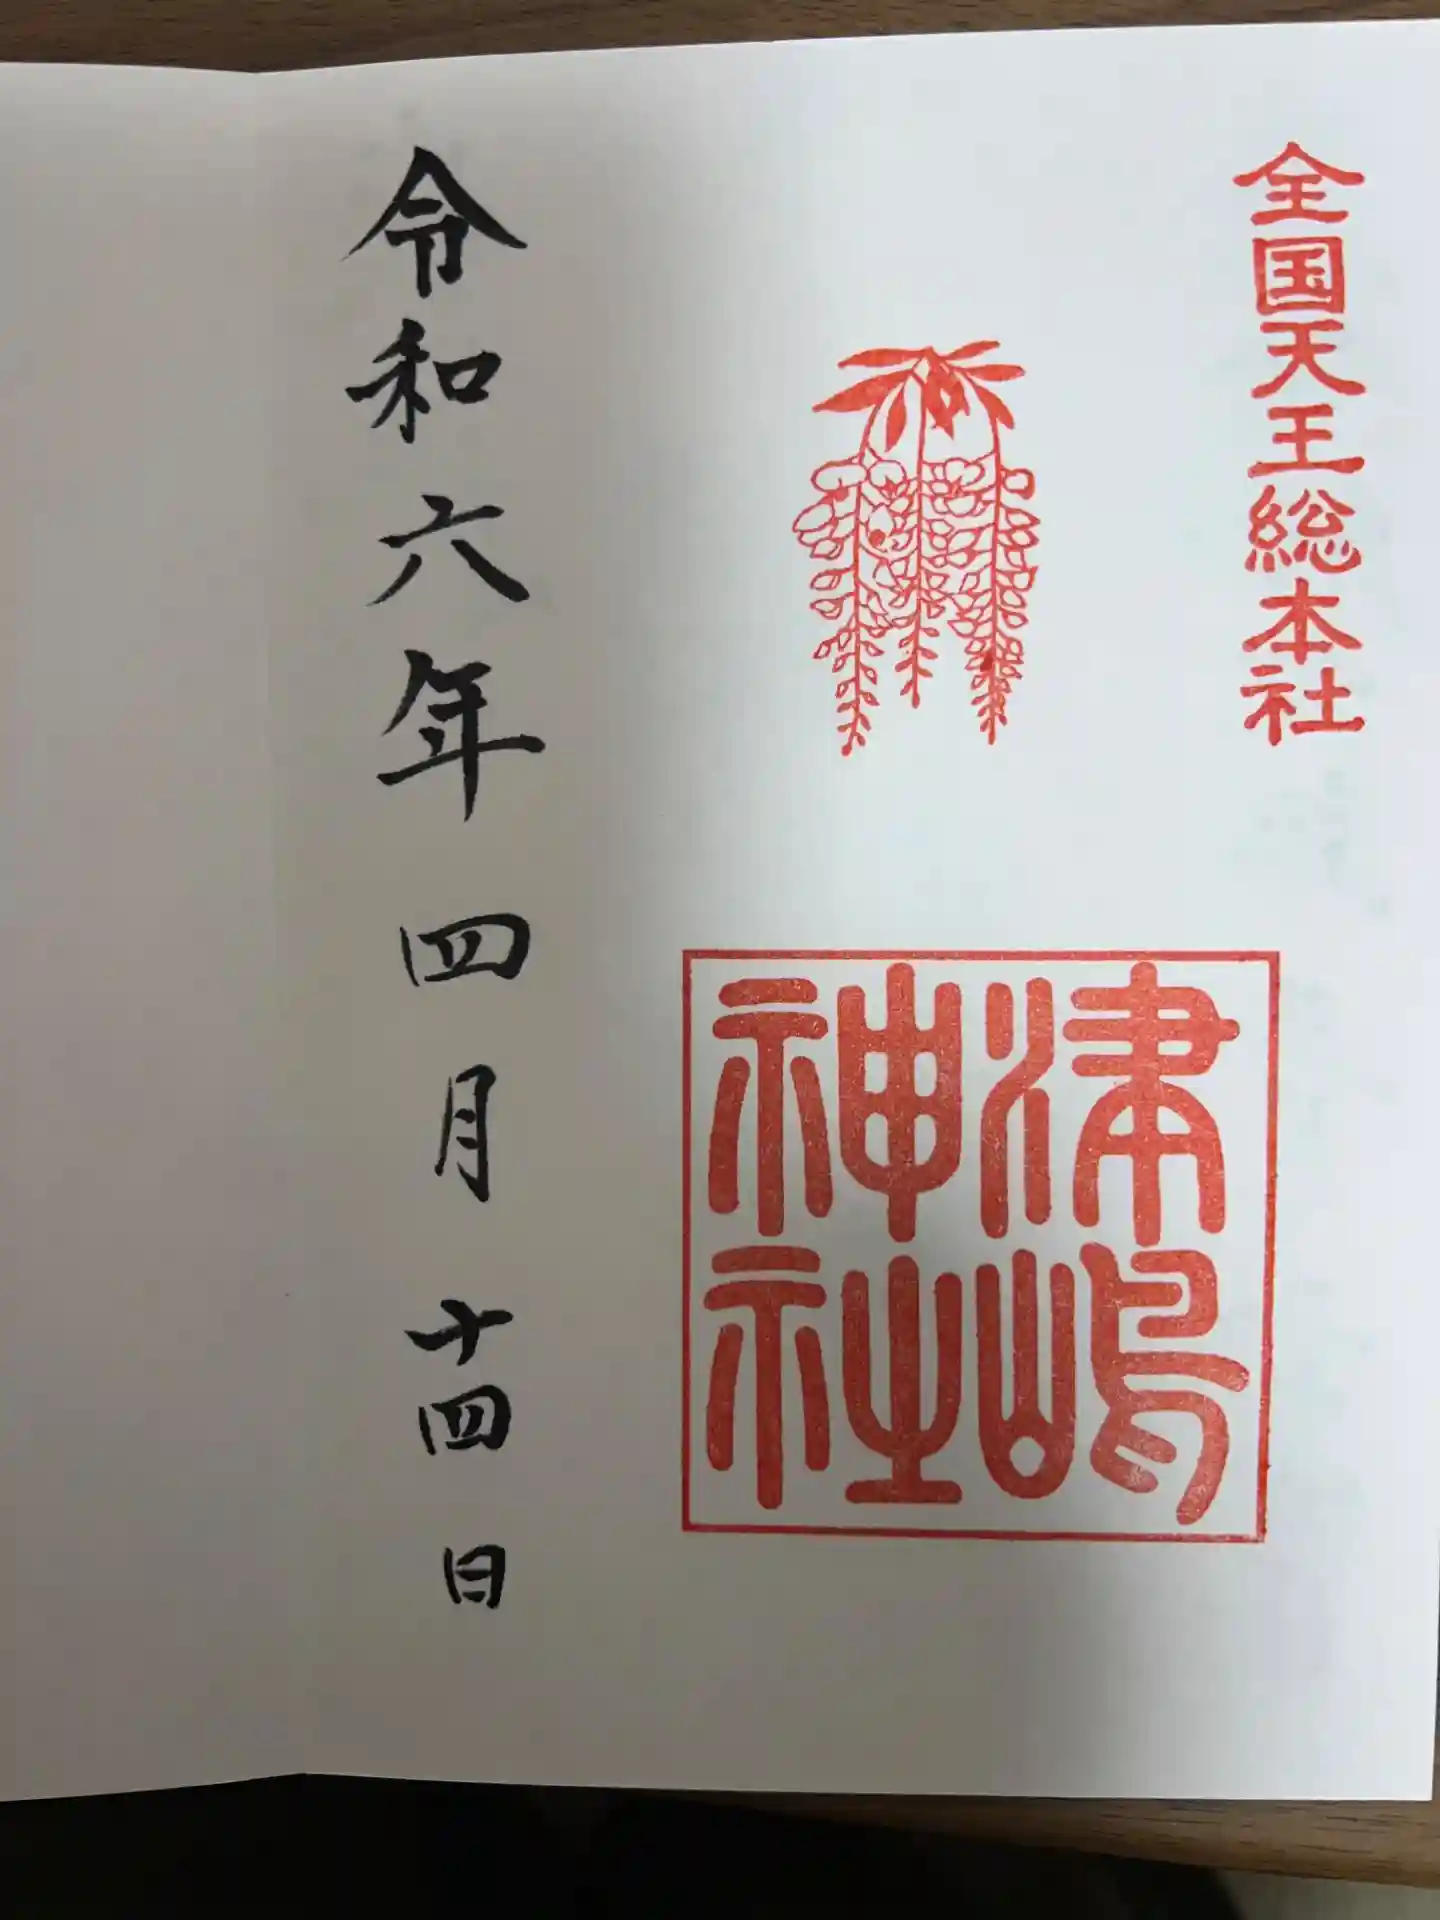 全国天王総本社
津嶋
神社
令和六年四月十四日